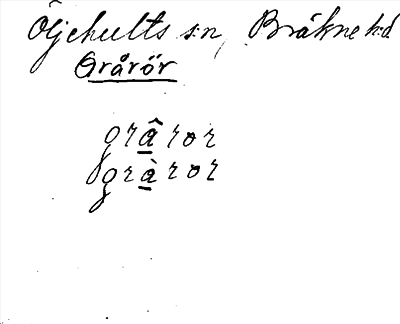 Öljehults s:n, Bräkne h:d
Grårör
grâ̱ror
grà̱ror